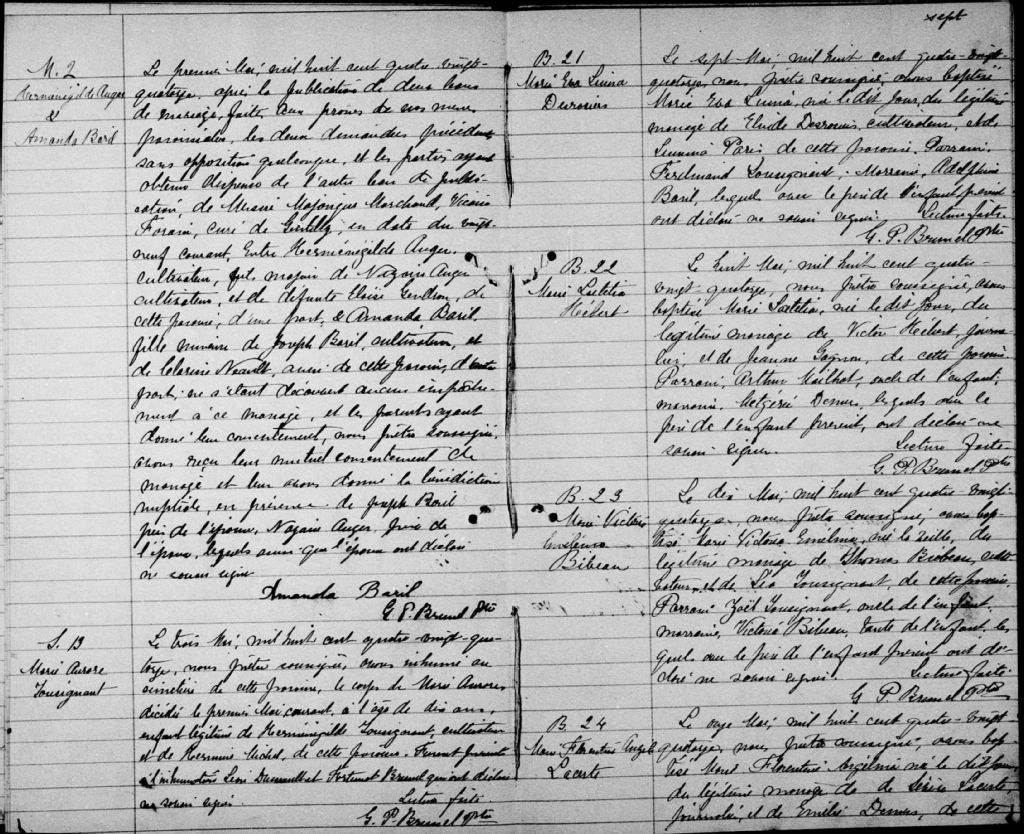 M. 2
Herménégilde Auger
&
Amanda Baril
Le premier Mai, mil huit cent quatre-vingt-
quatorze, après la publication de deux bans
de mariage, faite aux prônes de nos messes
paroissiales, les deux dimanches précédents
sans opposition quelconque, et les parties ayant
obtenu dispense de l'autre ban de publi-
cation, de Messire Majorique Marchand, Vicaire
Forain, curé de Gentilly, en date du vingt-
neuf courant, Entre Herménégilde Auger
cultivateur, fils majeur de Nazaire Auger
cultivateur, et de défunte Eloïse Gendron, de
cette paroisse, d'une part, & Amanda Baril
fille mineure de Joseph Baril, cultivateur, et
de Clarisse Neault, aussi de cette paroisse, d'autre
part; ne s'étant découvert aucun empêche-
ment à ce mariage, et les parents ayant
donné leur consentement, nous Prêtre soussigné,
avons reçu leur mutuel consentement de
mariage et leur avons donné la bénédiction
nuptiale, en présence de Joseph Baril
père de l'épouse, Nazaire Auger, père de
l'époux, lesquels ainsi que l'époux ont déclaré
ne savoir signer
Amanda Baril
G. P. Brunel Ptre
S. 13
Marie Aurore
Tousignant
Le trois Mai, mil huit cent quatre-vingt-qua-
torze, nous prêtre soussigné, avons inhumé au
cimetière de cette paroisse, le corps de Marie Aurore
décédée le premier Mai courant, à l'âge de dix ans,
enfant légitime de Herménégilde Tousignant, cultivateur
et de Hermine Michel, de cette paroisse. Furent présents
à l'inhumation Léon et Fortunat Brunel qui ont déclaré
ne savoir signer.
Lecture faite
G. P. Brunel Ptre
sept
B. 21
Marie Eva Luina
Desrosiers
Le sept Mai, mil huit cent quatre-vingt-
quatorze, nous Prêtre soussigné, avons baptisé
Marie Eva Luina, née le dit jour, du légitime
mariage de Elzide Desrosiers, cultivateur, et de
Paris de cette paroisse. Parrain,
Ferdinand Tousignant; Marraine, Adolphine
Baril, lesquels avec le père de l'enfant présent
ont déclaré ne savoir signer. Lecture faite
G. P. Brunel Ptre
B. 22
Marie Laetitia
Hébert
Le huit Mai, mil huit cent quatre-
vingt-quatorze, nous Prêtre soussigné, avons
baptisé Marie Laetitia, née le dit jour, du
légitime mariage de Victor Hébert, journa-
lier, et de Jeanne Gagnon, de cette paroisse.
Parrain, Arthur Mailhot, oncle de l'enfant,
marraine, Demers, lesquels avec le
père de l'enfant présent, ont déclaré ne
savoir signer.
Lecture faite
G. P. Brunel Ptre
B. 23
Marie Victoria
Emélina
Bibeau
Le dix Mai, mil huit cent quatre-vingt-
quatorze, nous Prêtre soussigné, avons bap-
tisé Marie Victoria Emelina, née la veille, du
légitime mariage de Thomas Bibeau, culti-
vateur, et de Léa Tousignant, de cette paroisse.
Parrain Zoël Tousignant, oncle de l'enfant,
marraine, Victoria Bibeau, tante de l'enfant, les-
quels avec le père de l'enfant présent ont dé-
claré ne savoir signer. Lecture faite
G. P. Brunel Ptre
B. 24
Marie Florentine
Lacerte
Le onze Mai, mil huit cent quatre-vingt-
quatorze, nous Prêtre soussigné, avons bap-
tisé Marie Florentine née le dit jour
du légitime mariage de de Lacerte,
journalier, et de Emélie Demers, de cette